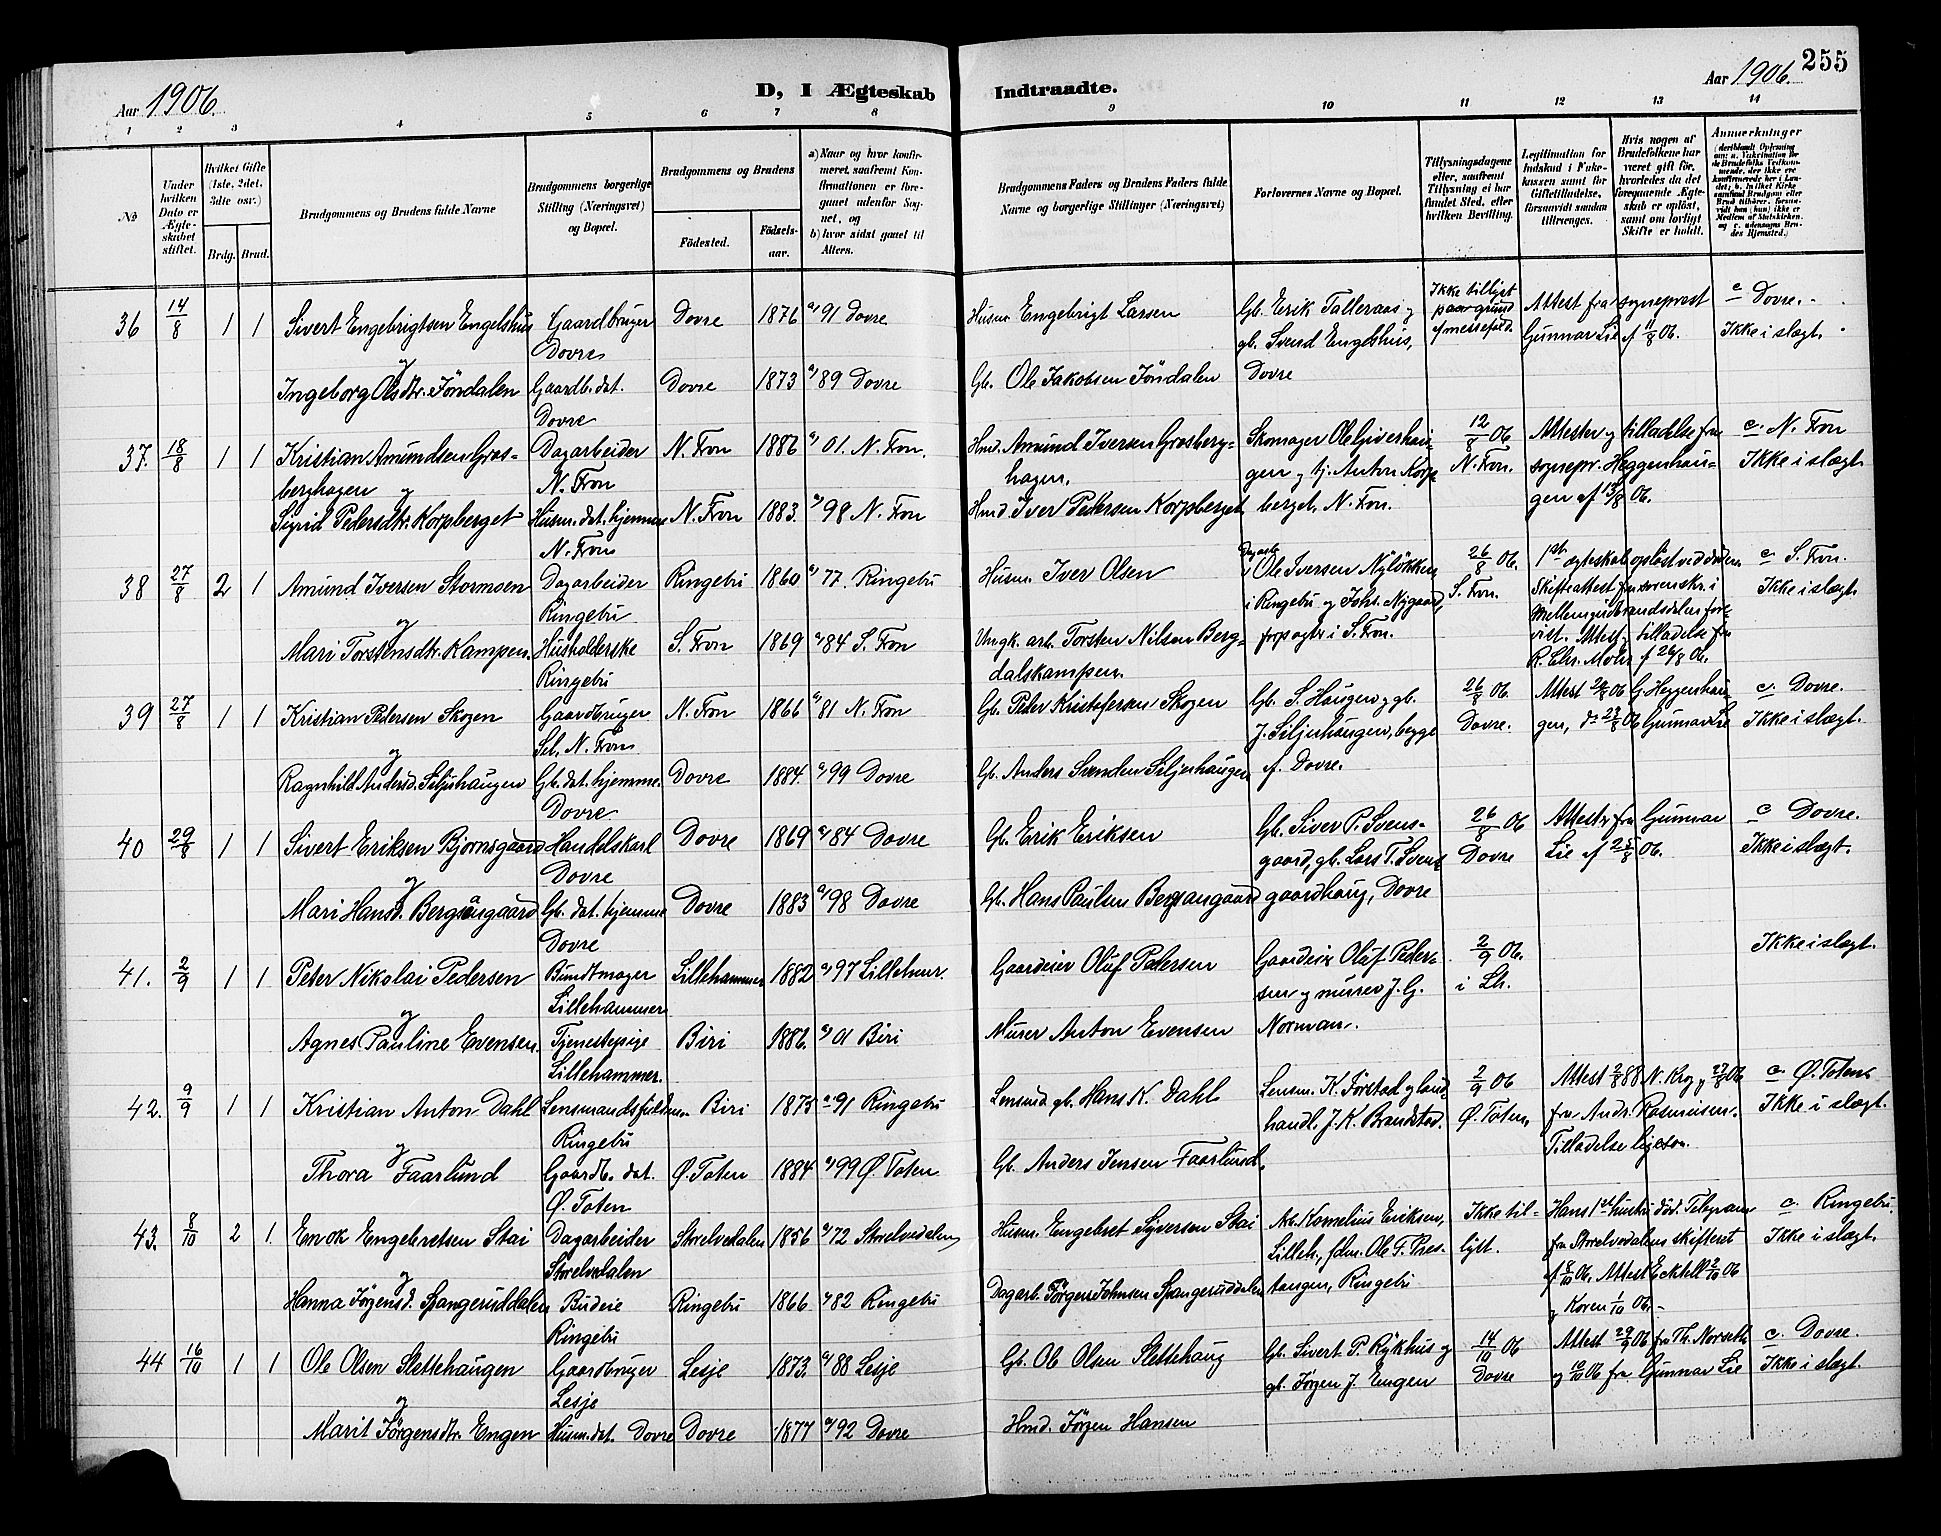 Aar 1906.
D, I Ægteskab Indtraadte.
Aar 1906.
255
1 2 3 4 5 6 7 8 9 10 11 12 13 14
No
Under hvilken Dato er Ægteskabet stiftet.
Hvilket Gifte (1ste, 2det, 3die osv.)
Brdg. Brud.
Brudgommens og Brudens fulde Navne
Brudgommens borgerlige Stilling (Næringsvei) og Bopæl.
Brudgommens og Brudens
Födested.
Födselsaar.
a) Naar og hvor konfirmeret, saafremt Konfirmationen er foregaaet udenfor Sognet, og
b) hvor sidst gaaet til Alters.
Brudgommens Faders og Brudens Faders fulde Navne og borgerlige Stillinger (Næringsvei)
Forlovernes Navne og Bopæl.
Tillysningsdagene eller, saafremt Tillysning ei har fundet Sted, efter hvilken Bevilling.
Legitimation for Indskud i Enkekassen samt for Giftetilladelse, forsaavidt saadan tiltrænges.
Hvis nogen af Brudefolkene har været gift för, hvorledes da det foregaaende Ægteskab er oplöst, samt om lovligt Skifte er holdt.
Anmærkninger
36 14/8 1 1 Sivert Engebrigtsen Engelshus Gaardbruger Dovre Dovre 1876 a) 91 Dovre Husm. Engebrigt Larsen Gb. Erik Talleraas og gb. Svend Engelshus, Dovre Ikke tillyst paa grund af messefald. Attest fra sogneprest Gunnar Lie af 11/8 06. c Dovre. Ikke i slægt.
og
Ingeborg Olsdtr. Jöndalen Gaardb. dat. Dovre Dovre 1873 a) 89 Dovre Gb. Ole Jakobsen Jöndalen
37. 18/8 1 1 Kristian Amundsen Grosberghagen Dagarbeider N. Fron N. Fron 1886 a) 01. N. Fron. Hmd. Amund Iversen Grosberghagen. Skomager Ole Giverhaugen og tj. Anton Korpberget, N. Fron. 12/8 06 N. Fron. Attester og tilladelse fra sognepr. Heggenhaugen af 13/8 06. c. N. Fron Ikke i slægt
og
Sigrid Pedersdtr. Korpberget Husm. dat. hjemme N. Fron N. Fron 1883. a) 98 N. Fron Hmd. Iver Pedersen Korpberget
38 27/8 2 1 Amund Iversen Stormoen Dagarbeider Ringebu Ringebu 1860 a) 77. Ringebu Husm. Iver Olsen Dagarb. Ole Iversen Nyløkken i Ringebu og Johs. Nygaard, forpagter i S. Fron. 26/8 06. S. Fron. 1ste ægteskab opløst ved døden. Skifteattest fra sorenskr. i Mellemgudbrandsdalen forevist. Attest og tilladelse fra R. Chr. Mohr af 26/8 06. c. S. Fron. Ikke i slægt
og
Mari Torstensdtr. Kampen. Husholderske Ringebu S. Fron 1869 a) 84 S. Fron Ungk. arb. Torsten Nilsen Bergdalskampen.
39 27/8 1 1 Kristian Pedersen Skogen Gaardbruger Sel, N. Fron N. Fron 1866 a) 81 N. Fron Gb. Peter Kristofersen Skogen Gb. S. Haugen og gb. J. Siljuhaugen, begge af Dovre. 26/8 06. Dovre. c. Dovre. Ikke i slægt.
og
Ragnhild Andersd. Siljuhaugen Gb. dat. hjemme. Dovre Dovre 1884. a) 99 Dovre Gb. Anders Svendsen Siljuhaugen
40 29/8 1 1 Sivert Eriksen Bjørnsgaard Handelskarl Dovre Dovre 1869 a) 84 Dovre Gb. Erik Eriksen Gb. Siver P. Svensgaard, gb. Lars T. Svensgaardhaug, Dovre 26/8 06 Dovre Attester fra Gunnar Lie af 25/8 06. c Dovre. Ikke i slægt.
og
Mari Hansd. Bergsengaard Gb. dat. hjemme Dovre Dovre 1883 a) 98 Dovre Gb. Hans Paulsen
41. 2/9 1 1 Peter Nikolai Pedersen Bundtmager Lillehammer Lillehammer 1882 a) 97 Lillehmr. Gaardeier Oluf Pedersen Gaardeier Oluf Pedersen og murer J. G. Norman. 2/9 06. i Lh. Ikke i slægt.
og
Agnes Pauline Evensen. Tjenestepige Lillehammer. Biri 1886. a) 01 Biri Murer Anton Evensen
42. 9/9 1 1 Kristian Anton Dahl Lensmandsfuldm. Ringebu Biri 1875 a) 91 Ringebu Lensmd. gb. Hans K. Dahl Lensm. K. Førstad og landhandl. J. K. Brandstad. 2/9 06 Ø. Toten. Attest 2/8 88 N. Krog og 27/8 06 fra Andr. Rasmussen. Tilladelse ligesom. c. Ø. Toten Ikke i slægt.
og
Thora Faarlund Gaardb. dat. Ø. Toten Ø. Toten 1884 a) 99 Ø. Toten Gb. Anders Jensen Faarlund.
43. 8/10 2 1. Enok Engebretsen Stai Dagarbeider Storelvedalen Storelvedalen 1856 a) 72 Storelvedalen Husm. Engebret Syversen Stai Arb. Kornelius Eriksen, Lilleh., fdm. Ole T. Prestangen, Ringebu Ikke tillyst. Hans 1ste hustru död. Telegram fra Storelvedalens skifteret af 8/10 06. Attest Eckell 2/10 06 og Koren 1/10 06. c. Ringebu. Ikke i slægt.
og
Hanna Jørgensd. Spangeruddalen Budeie Ringebu Ringebu 1866. a) 82 Ringebu Dagarb. Jørgen Johnsen Spangeruddalen
44 16/10 1 1 Ole Olsen Slettehaugen Gaardbruger Lesje Lesje 1873. a) 88 Lesje Gb. Ole Olsen Slettehaug Gb. Sivert P. Rykhus og gb. Jørgen J. Engen 14/10 06 Dovre Attest 29/9 06 fra Th. Norseth og 10/10 06 fra Gunnar Lie c. Dovre. Ikke i slægt.
og
Marit Jørgensdtr. Engen Husm. dat. Dovre Dovre 1877 a) 92 Dovre Hmd. Jørgen Hansen